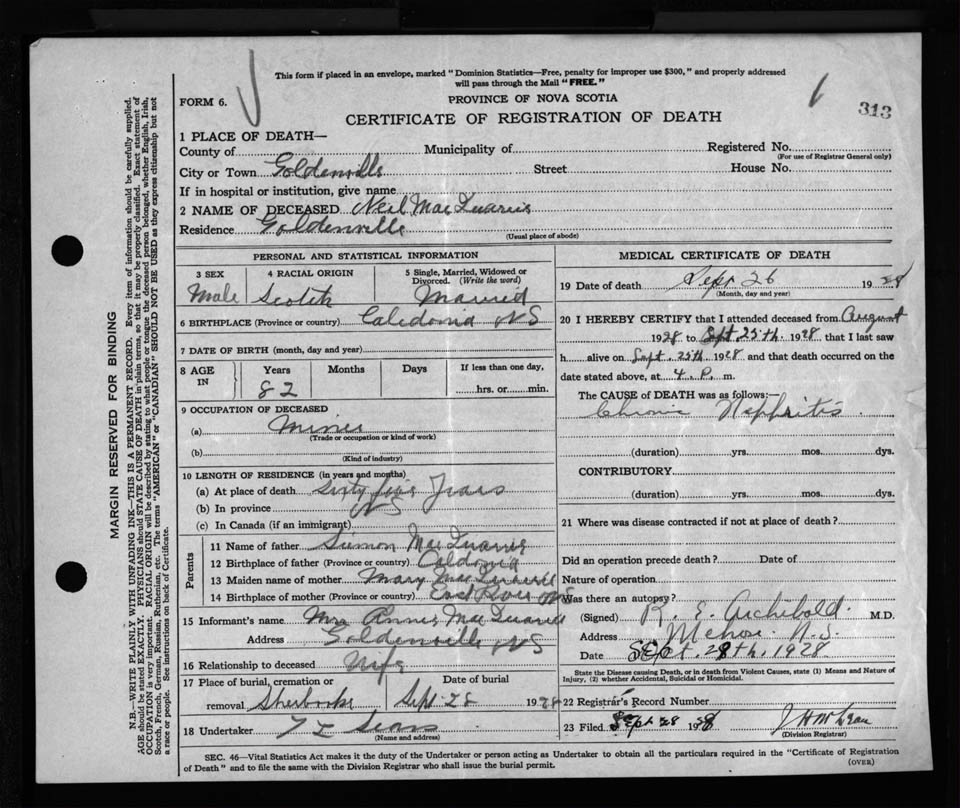 This form if placed in an envelope, marked "Dominion Statistics—Free, penalty for improper use $300," and properly addressed
will pass through the Mail "FREE."
FORM 6.
PROVINCE OF NOVA SCOTIA
313
CERTIFICATE OF REGISTRATION OF DEATH
1 PLACE OF DEATH—
County of Municipality of Registered No.
(For use of Registrar General only)
City or Town Goldenville Street House No.
If in hospital or institution, give name
2 NAME OF DECEASED Neil MacQuarrie
Residence Goldenville
(Usual place of abode)
PERSONAL AND STATISTICAL INFORMATION
3 SEX 4 RACIAL ORIGIN 5 Single, Married, Widowed or
Divorced. (Write the word)
Male Scotch Married
6 BIRTHPLACE (Province or country) Caledonia NS
7 DATE OF BIRTH (month, day and year)
8 AGE IN Years Months Days If less than one day,
82 hrs. or min.
9 OCCUPATION OF DECEASED
(a) Miner
(Trade or occupation or kind of work)
(b)
(Kind of industry)
10 LENGTH OF RESIDENCE (in years and months)
(a) At place of death Sixty five Years
(b) In province NS
(c) In Canada (if an immigrant)
Parents
11 Name of father Simon MacQuarrie
12 Birthplace of father (Province or country) Caldonia
13 Maiden name of mother Mary MacQuarrie
14 Birthplace of mother (Province or country) East River NS
15 Informant's name Mrs Annie MacQuarrie
Address Goldenville NS
16 Relationship to deceased Wife
17 Place of burial, cremation or Date of burial
removal Sherbrooke Sept 28 1928
18 Undertaker Sears
(Name and address)
MEDICAL CERTIFICATE OF DEATH
19 Date of death Sept 26 1928
(Month, day and year)
20 I HEREBY CERTIFY that I attended deceased from August
1928 to Sept 25th. 1928 that I last saw
h alive on Sept. 25th 1928 and that death occurred on the
date stated above, at 4. P. m.
The CAUSE of DEATH was as follows:—
Chronic Nephritis
(duration) yrs. mos. dys.
CONTRIBUTORY
(duration) yrs. mos. dys.
21 Where was disease contracted if not at place of death?
Did an operation precede death? Date of
Nature of operation
Was there an autopsy?
(Signed) R. E. Archibold. M.D.
Address N.S.
Date SEpt. 28th, 1928
State the Disease causing Death, or in death from Violent Causes, state (1) Means and Nature of
Injury, (2) whether Accidental, Suicidal or Homicidal.
22 Registrar's Record Number
23 Filed Sept 28 1928 J H McLean
(Division Registrar)
SEC. 46—Vital Statistics Act makes it the duty of the Undertaker or person acting as Undertaker to obtain all the particulars required in the "Certificate of Registration
of Death" and to file the same with the Division Registrar who shall issue the burial permit.
(OVER)
MARGIN RESERVED FOR BINDING
N.B.—WRITE PLAINLY WITH UNFADING INK—THIS IS A PERMANENT RECORD. Every item of information should be carefully supplied.
AGE should be stated EXACTLY. PHYSICIANS should STATE CAUSE OF DEATH in plain terms, so that it may be properly classified. Exact statement of
OCCUPATION is very important. RACIAL ORIGIN will be described by stating to what people or tongue the deceased person belonged, whether English, Irish,
Scotch, French, German, Russian, Ruthenian, etc. The terms "AMERICAN" or "CANADIAN" SHOULD NOT BE USED as they express citizenship but not
a race or people. See instructions on back of Certificate.